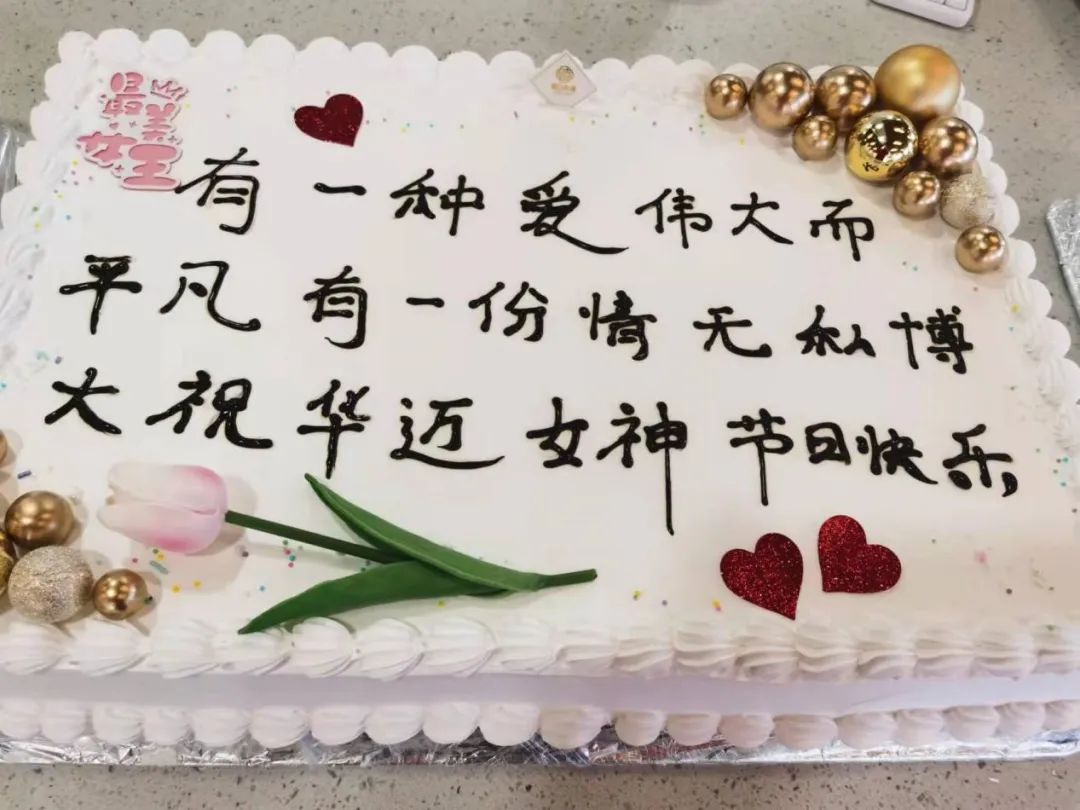 最美
女王
有一种爱伟大而
平凡有一份情无私博
大祝华迈女神节日快乐